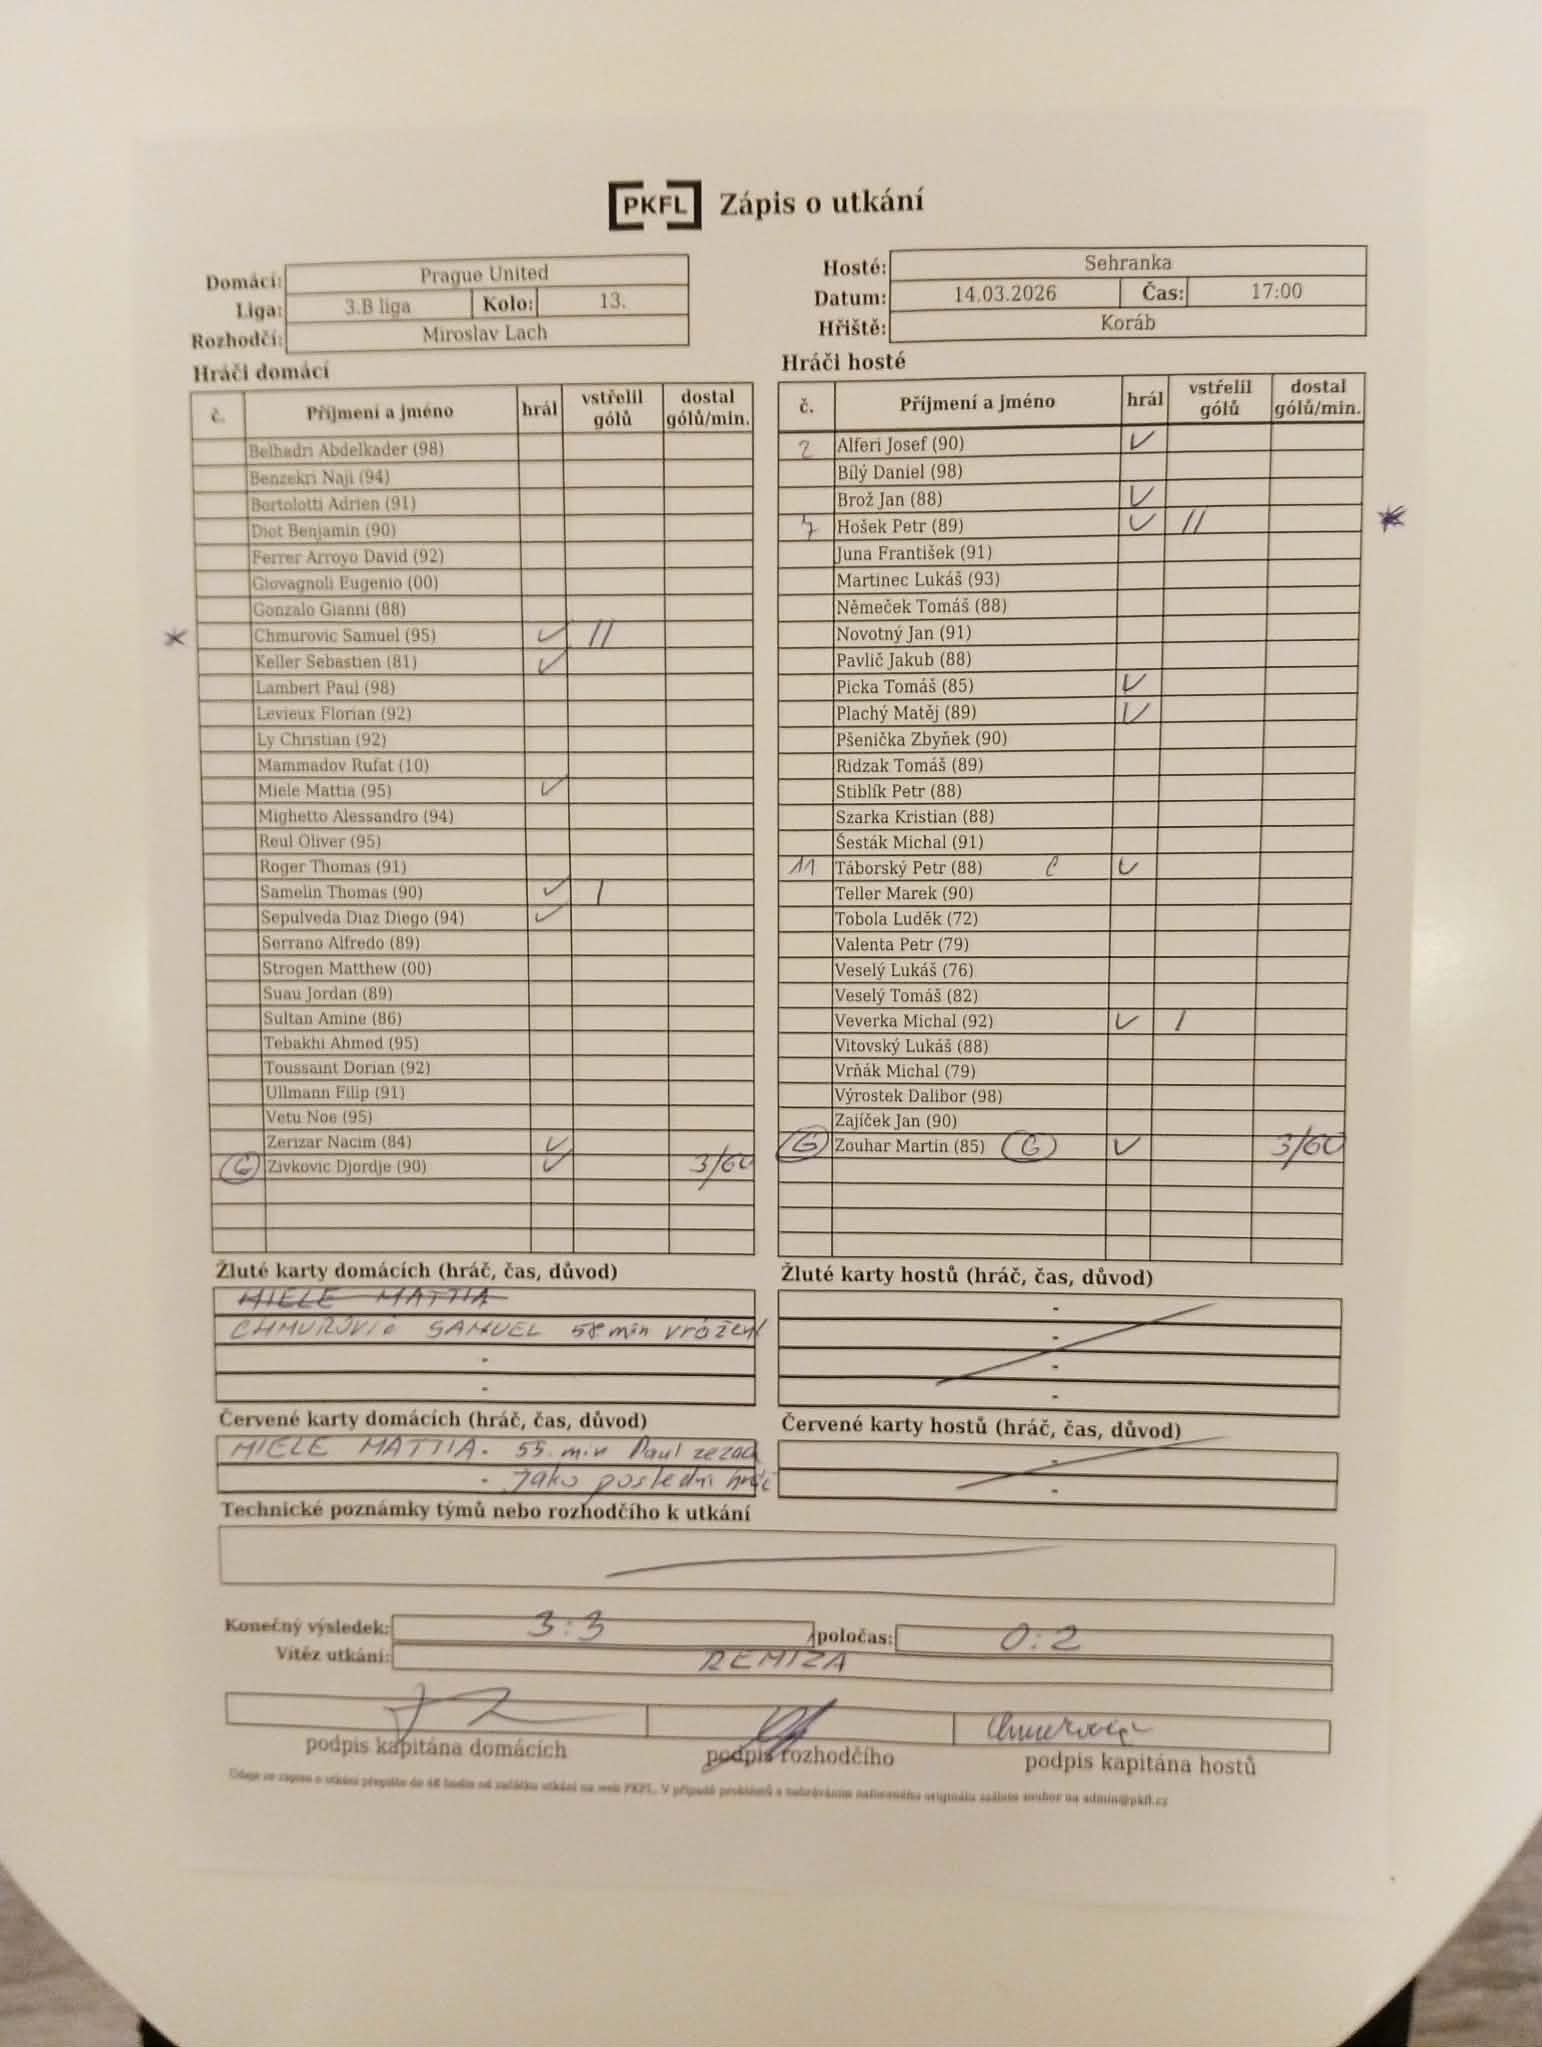 PKFL Zápis o utkání
Domácí: Prague United
Liga: 3.B liga Kolo: 13.
Rozhodčí: Miroslav Lach
Hosté: Sehranka
Datum: 14.03.2026 Čas: 17:00
Hřiště: Koráb
Hráči domácí
č. Příjmení a jméno hrál vstřelil gólů dostal gólů/min.
Belhadri Abdelkader (98)
Benzekri Naji (94)
Bortolotti Adrien (91)
Diot Benjamin (90)
Ferrer Arroyo David (92)
Giovagnoli Eugenio (00)
Gonzalo Gianni (88)
* Chmurovic Samuel (95) ✓ //
Keller Sebastien (81) ✓
Lambert Paul (98)
Levieux Florian (92)
Ly Christian (92)
Mammadov Rufat (10)
Miele Mattia (95) ✓
Mighetto Alessandro (94)
Reul Oliver (95)
Roger Thomas (91)
Samelin Thomas (90) ✓ /
Sepulveda Diaz Diego (94) ✓
Serrano Alfredo (89)
Strogen Matthew (00)
Suau Jordan (89)
Sultan Amine (86)
Tebakhi Ahmed (95)
Toussaint Dorian (92)
Ullmann Filip (91)
Vetu Noe (95)
Zerizar Nacim (84) ✓
G Zivkovic Djordje (90) ✓ 3/60
Hráči hosté
č. Příjmení a jméno hrál vstřelil gólů dostal gólů/min.
2 Alferi Josef (90) ✓
Bílý Daniel (98)
Brož Jan (88) ✓
Hošek Petr (89) ✓ // *
Juna František (91)
Martinec Lukáš (93)
Němeček Tomáš (88)
Novotný Jan (91)
Pavlič Jakub (88)
Picka Tomáš (85) ✓
Plachý Matěj (89) ✓
Pšenička Zbyněk (90)
Ridzak Tomáš (89)
Stiblík Petr (88)
Szarka Kristian (88)
Šesták Michal (91)
11 Táborský Petr (88) C ✓
Teller Marek (90)
Tobola Luděk (72)
Valenta Petr (79)
Veselý Lukáš (76)
Veselý Tomáš (82)
Veverka Michal (92) ✓ /
Vitovský Lukáš (88)
Vrňák Michal (79)
Výrostek Dalibor (98)
Zajíček Jan (90)
G Zouhar Martin (85) G ✓ 3/60
Žluté karty domácích (hráč, čas, důvod)
MIELE MATTIA
CHMUROVIC SAMUEL 58 min vrážení
-
-
Žluté karty hostů (hráč, čas, důvod)
-
-
-
-
Červené karty domácích (hráč, čas, důvod)
MIELE MATTIA. 55. min Faul zezadu
- jako poslední hráč
Červené karty hostů (hráč, čas, důvod)
-
-
Technické poznámky týmů nebo rozhodčího k utkání
Konečný výsledek: 3:3 poločas: 0:2
Vítěz utkání: REMIZA
Chmurovic
podpis kapitána domácích podpis rozhodčího podpis kapitána hostů
Údaje ze zápisu o utkání přepište do 48 hodin od začátku utkání na web PKFL. V případě problémů s nahráváním nafoceného originálu zašlete soubor na admin@pkfl.cz